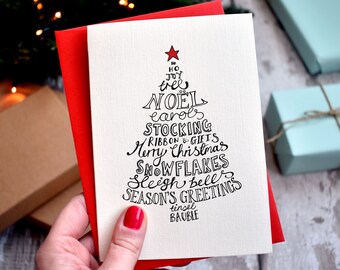 HO
JOY
tree
NOËL
carols
STOCKING
RIBBON & GIFTS
Merry Christmas
SNOWFLAKES
Sleigh bells
SEASON'S GREETINGS
tinsel
BAUBLE